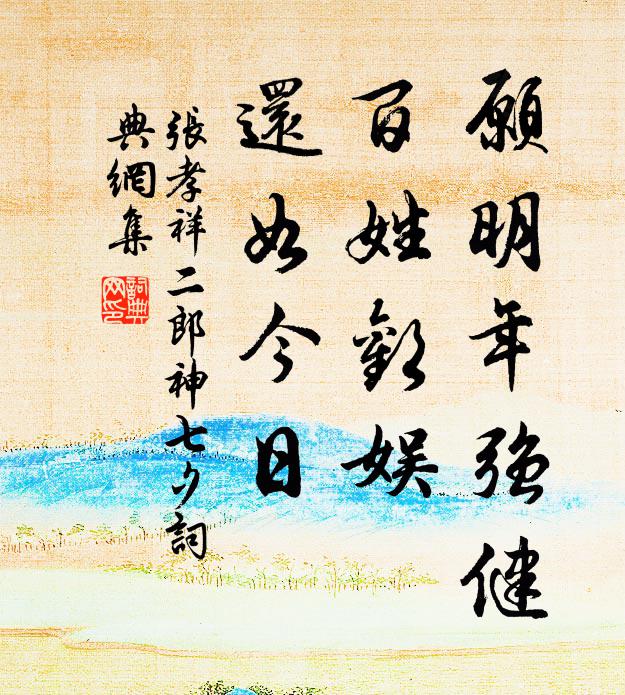 願明年強健
百姓歡娛
還如今日
張孝祥二郎神七夕詞
典網集
詞典網印